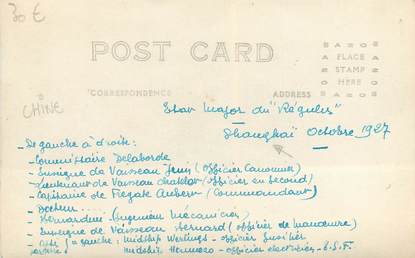 30 €
POST CARD
AZO
PLACE
STAMP
HERE
AZO
CORRESPONDENCE
ADDRESS
CHINE
Etat Major du "Régulus"
Shanghaï Octobre 1927
- De gauche à droite :
- Commissaire Delaborde
- Enseigne de Vaisseau (officier Canonnier)
- Lieutenant de Vaisseau (officier en second)
- Capitaine de Frégate (Commandant)
- Docteur ....
- Bernardini Ingénieur Mécanicien
- Enseigne de Vaisseau Bernard (officier de manoeuvre)
gauche : midship Werlings - officier fusilier
midship - officier électricien - T.S.F.